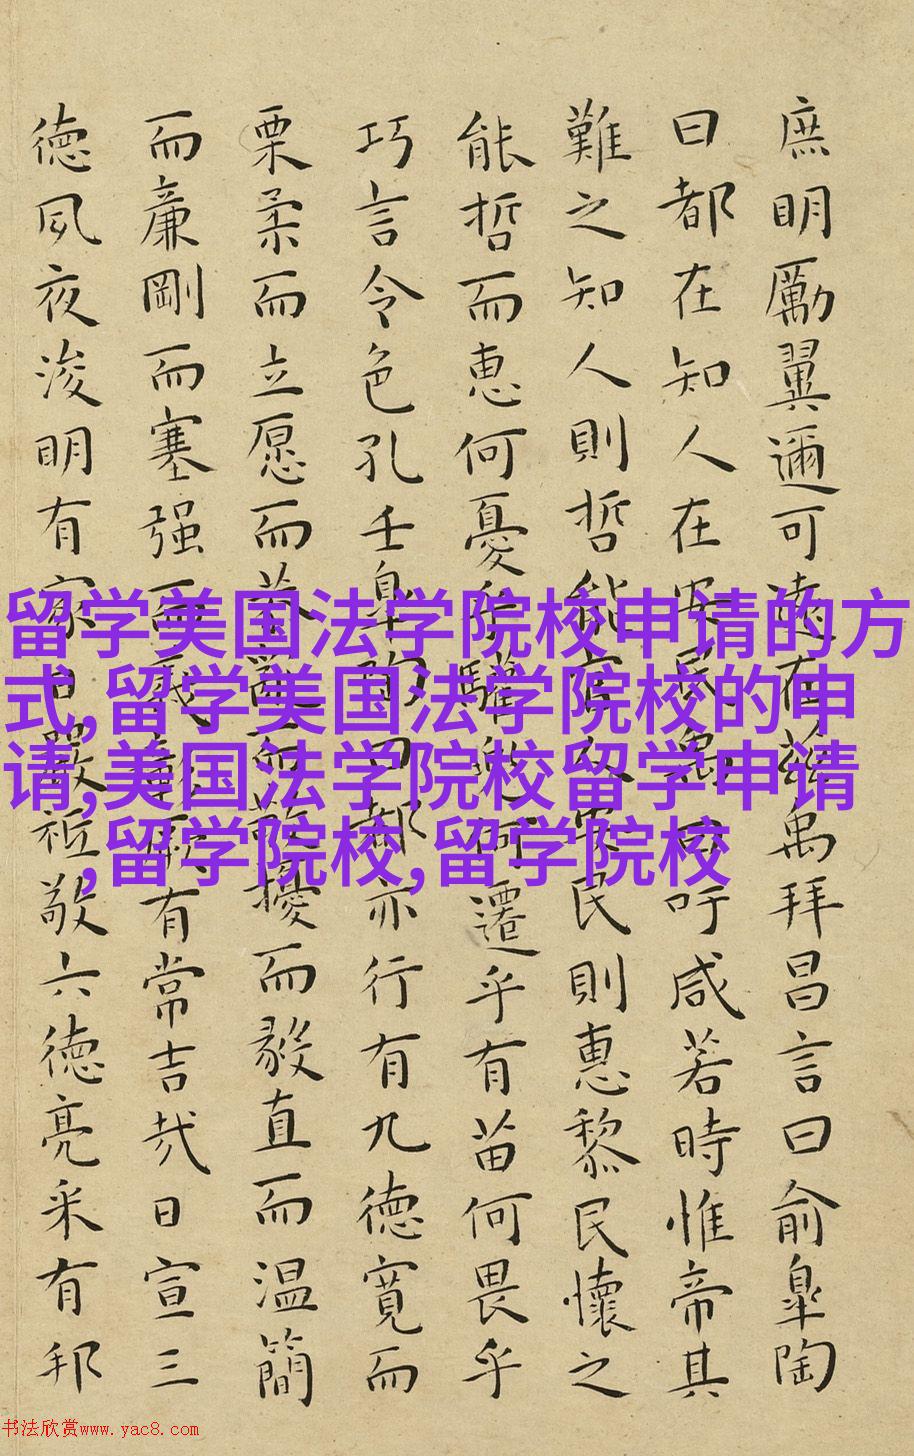 庶明勵翼邇可遠在茲禹拜昌言曰俞皐陶
曰都在知人在安民禹曰吁咸若時惟帝其
難之知人則哲能官人安民則惠黎民懷之
能哲而惠何憂乎驩兜何遷乎有苗何畏乎
巧言令色孔壬皐陶曰都亦行有九德寬而
栗柔而立愿而恭亂而敬擾而毅直而温簡
而廉剛而塞强而義彰厥有常吉哉日宣三
德夙夜浚明有家日嚴祗敬六德亮采有邦
留学美国法学院校申请的方
式,留学美国法学院校的申
请,美国法学院校留学申请
,留学院校,留学院校
书法欣赏www.yac8.com